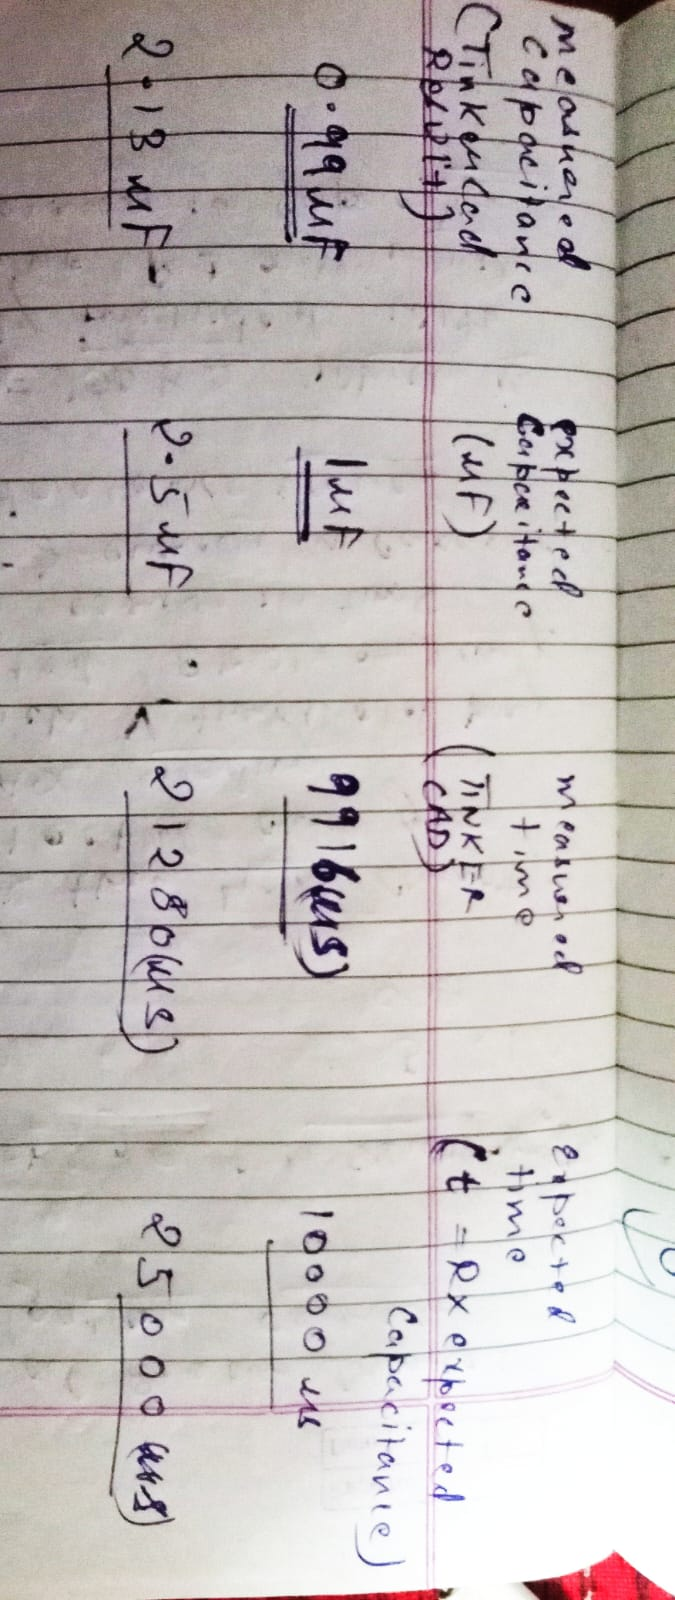 measured
capacitance
(Tinkercad
Result)
expected
capacitance
(μF)
measured
time
(TINKER
CAD)
expected
time
(t = R x expected
capacitance)
0.99μF
1μF
9916(μs)
10000 μs
2.13 μF
2.5 μF
21280(μs)
25000 (μs)